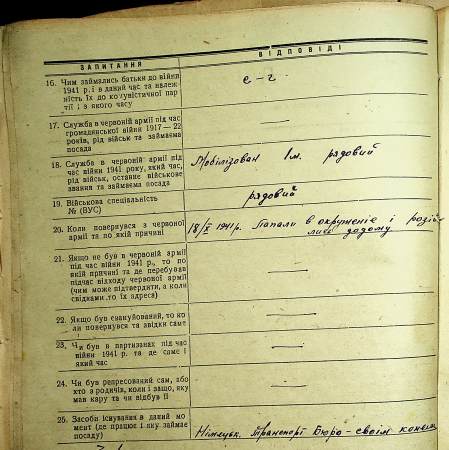 ЗАПИТАННЯ
ВІДПОВІДІ
16. Чим займались батьки до війни
1941 р. і в даний час та належ-
ність їх до комуністичної пар-
тії і з якого часу
с-г.
17. Служба в червоній армії під час
громадянської війни 1917—22
років, рід військ та займаєма
посада
—
18. Служба в червоній армії під
час війни 1941 року, який час,
рід військ, останнє військове
звання та займаєма посада
Мобілізован 1м. рядовий
19. Військова спеціальність
№ (ВУС)
рядовий
20. Коли повернувся з червоної
армії та по якій причині
18/X 1941р. Попали в окруженіє і розій-
лись додому.
21. Якщо не був в червоній армії
під час війни 1941 р., то по
якій причині та де перебував
підчас відходу червоної армії
(чим може підтвердити, а коли
свідками то їх адреса)
—
22. Якщо був евакуйований, то ко
ли повернувся та звідки саме
—
23. Чи був в партизанах під час
війни 1941 р. та де саме і
який час
—
24. Чи був репресований сам, або
хто з родичів, коли і защо, яку
мав кару та чи відбув її
—
25. Засоби існування в даний мо
мент (де працює і яку займає
посаду)
Німецьк. Транспорт Бюро - своїм конем